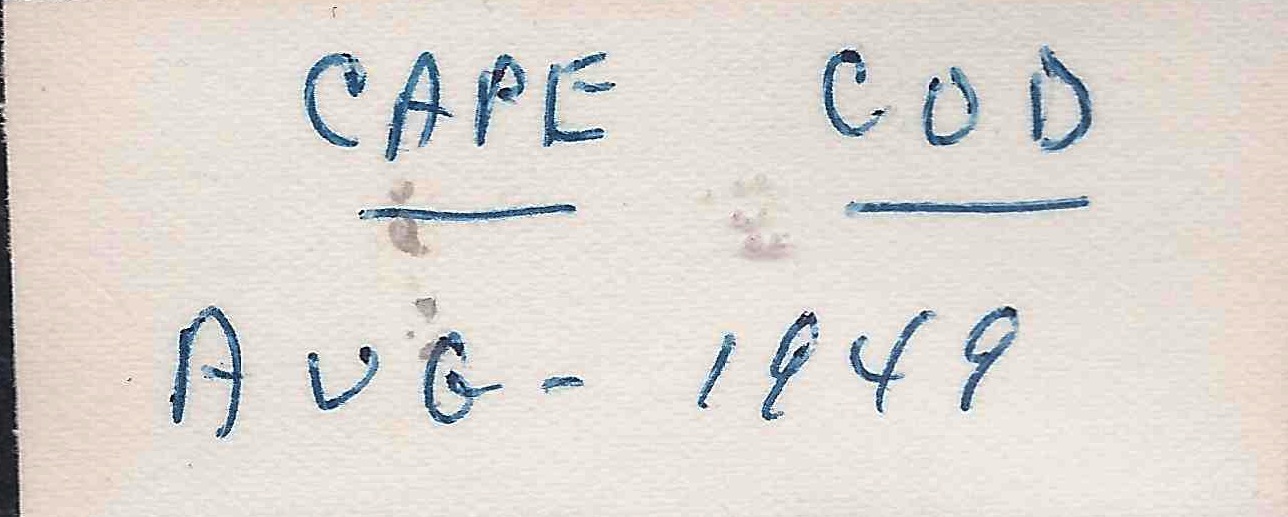 CAPE COD
AUG- 1949